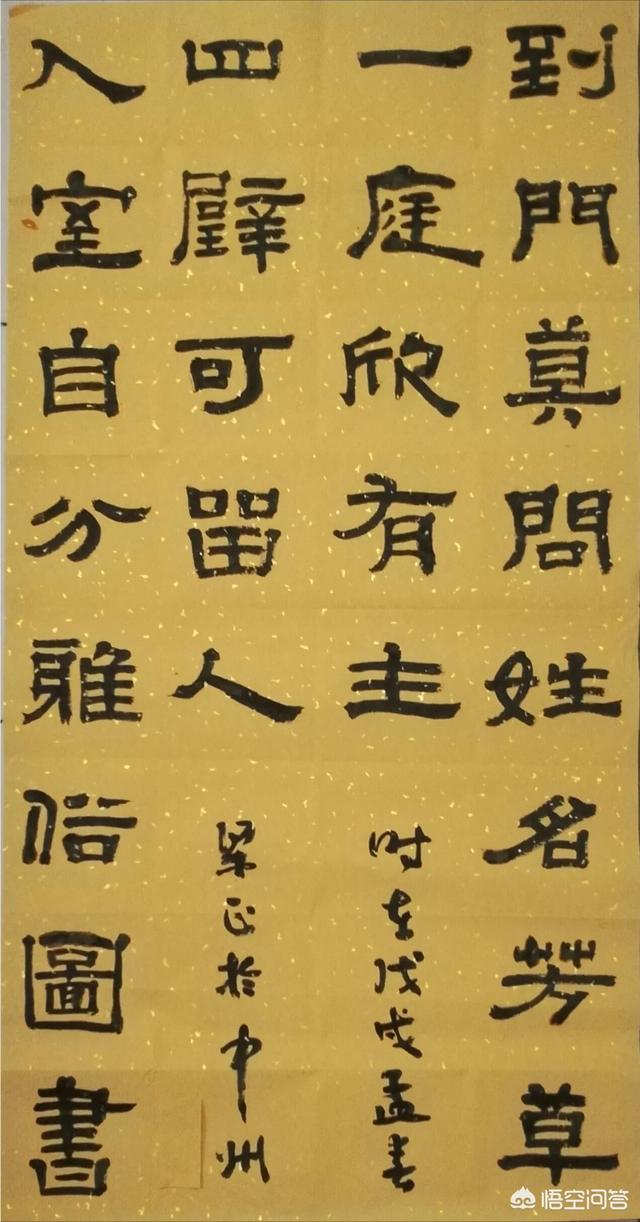 到門莫問姓名芳草
一庭欣有主
时在戊戌孟春
入室自分雅俗圖書
四壁可留人
梁正於中州
悟空问答